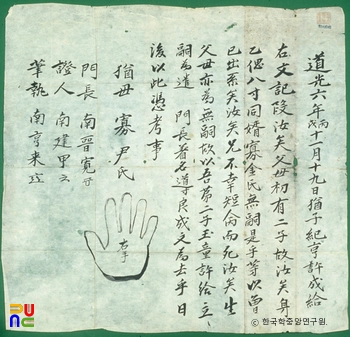 道光六年丙戌十一月十九日猶子紀亨許成給
右文記段汝矣父母初有二子故汝矣身
乙偲八寸同婿寡金氏無嗣是乎等以曾
已出系矣汝矣兄不幸短命而死汝矣生
父母亦為無嗣故以吾第二子玉童許給立
嗣為遣 門長着名導良成文為去乎日
後以此憑考事
猶母 寡 尹氏
右手
門長 南晉寬
證人 南建甲
筆執 南亨来
© 한국학중앙연구원